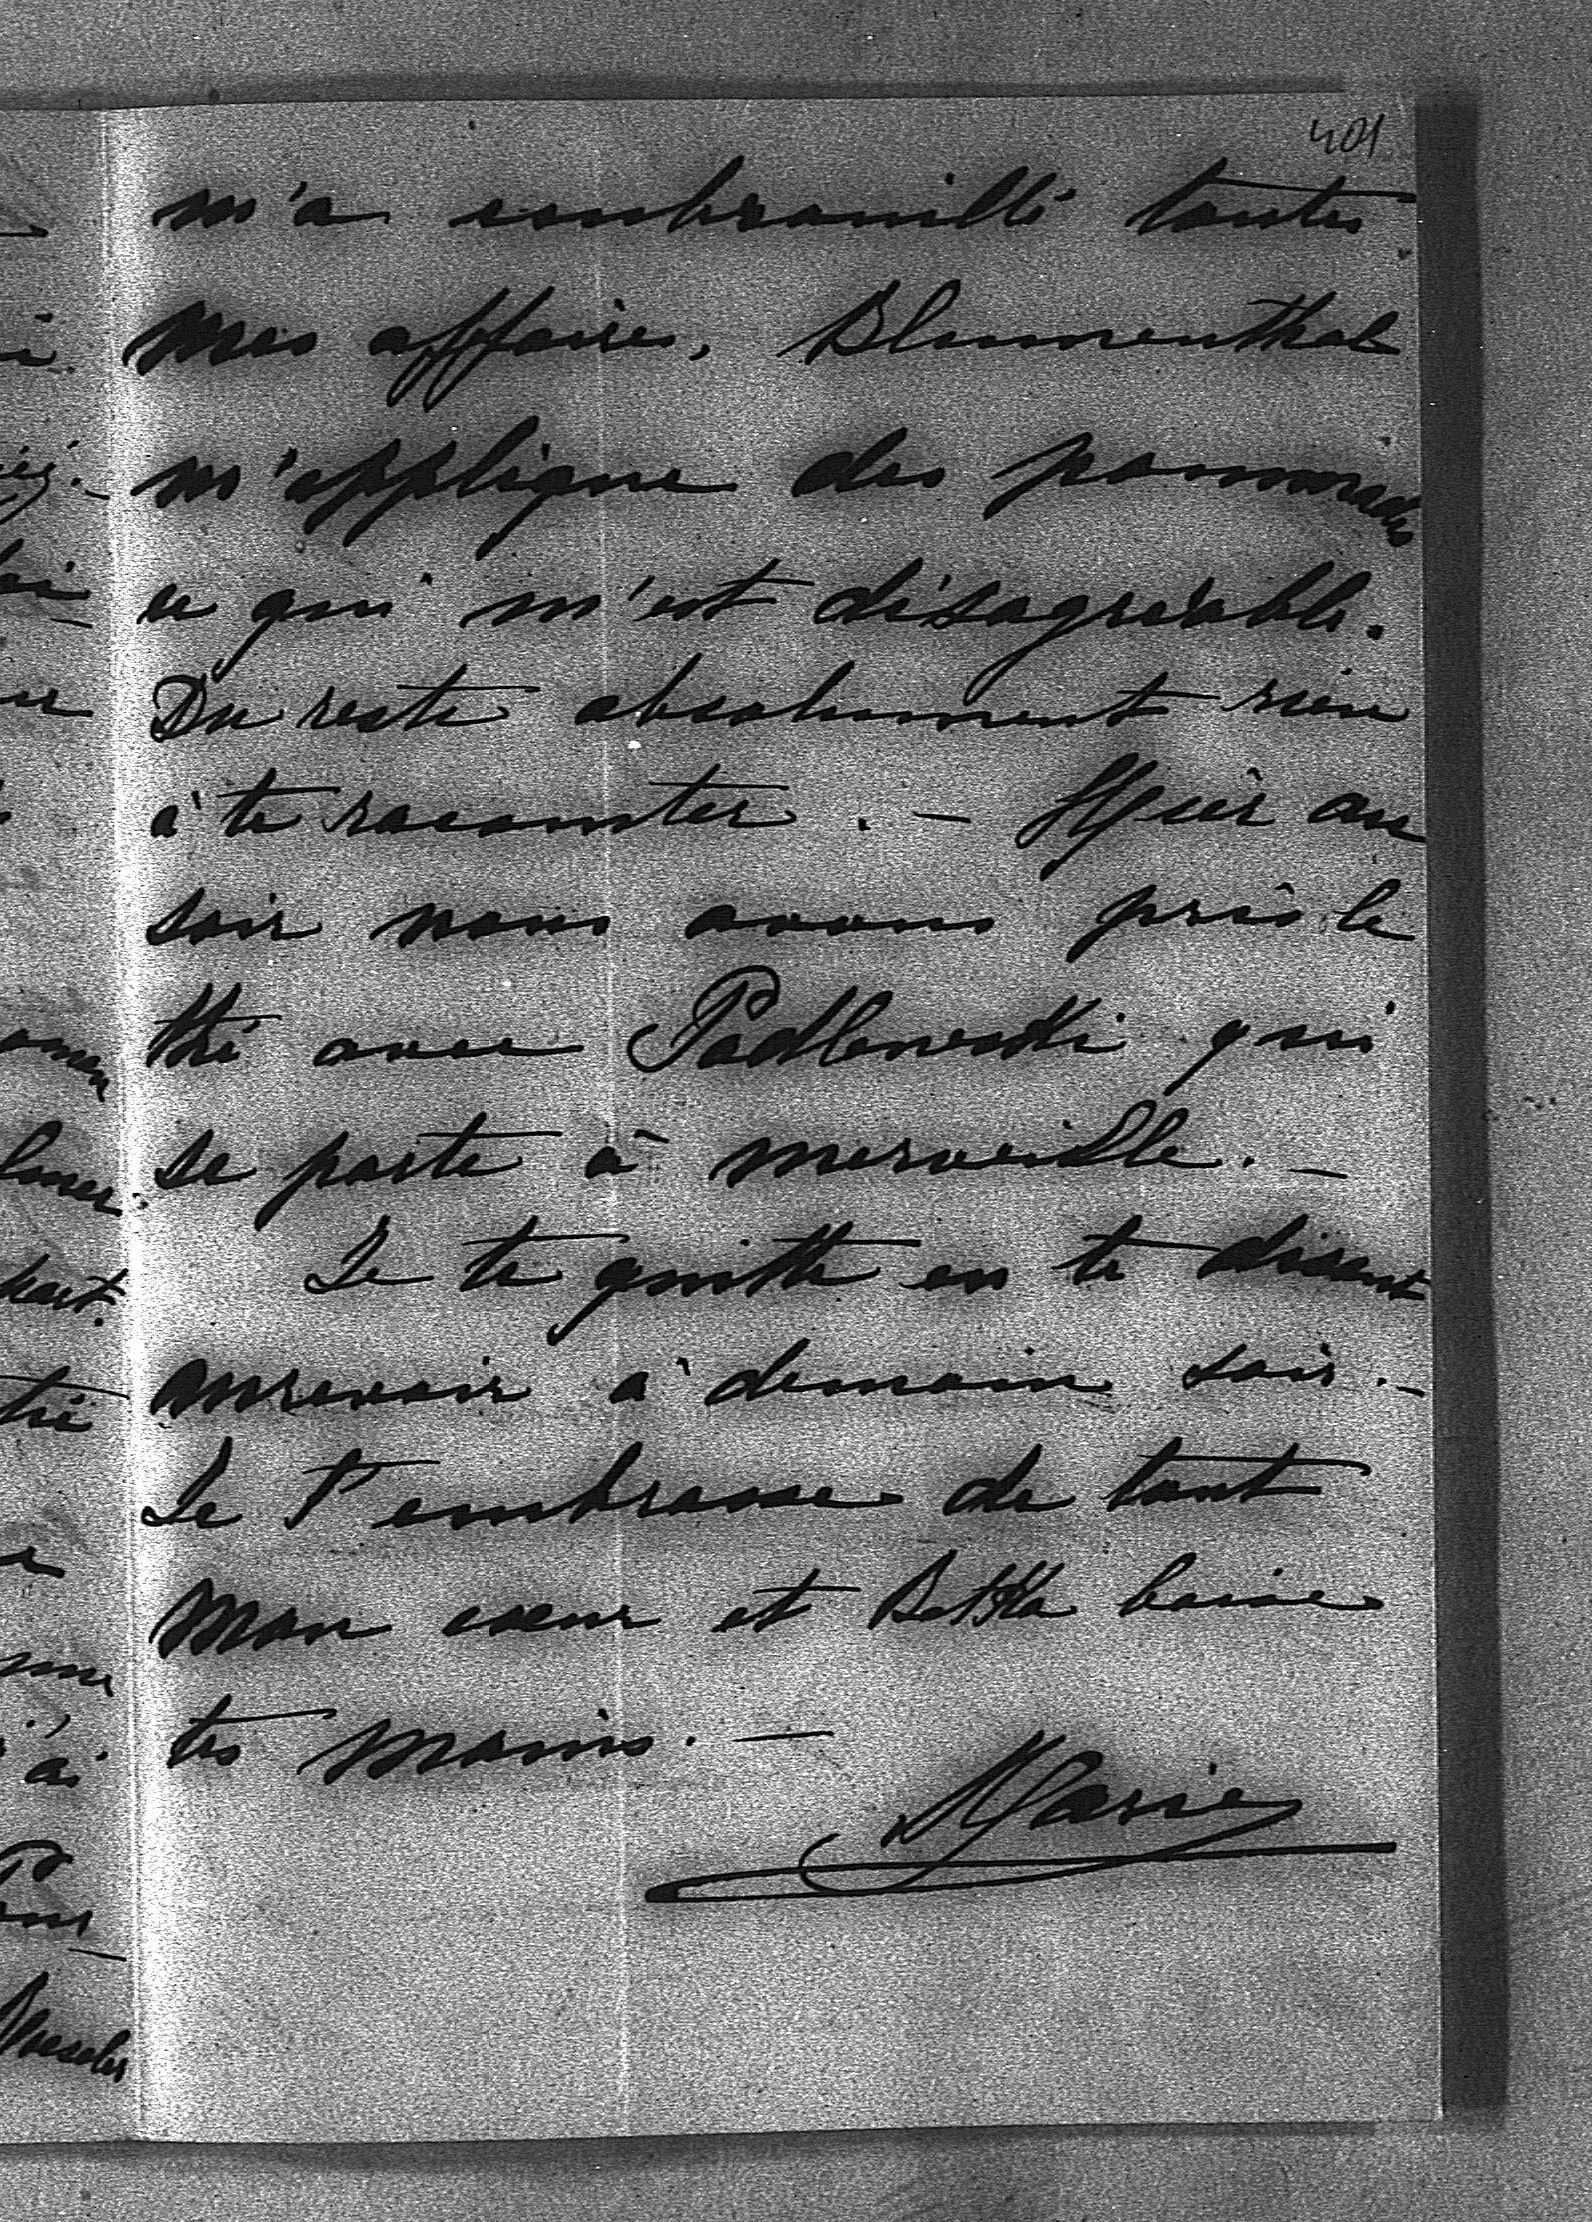 401
m'a embrouillé toutes
mes affaires. Blumenthal
m'applique des pommades
ce qui m'est désagréable.
Du reste absolument rien
à te raconter. — Hier au
soir nous avons pris le
thé avec Padlewski qui
se porte à merveille. —
Je te quitte en te disant
aurevoir à demain soir. —
Je t'embrasse de tout
mon cœur et Betkla baise
tes mains. —
Marie